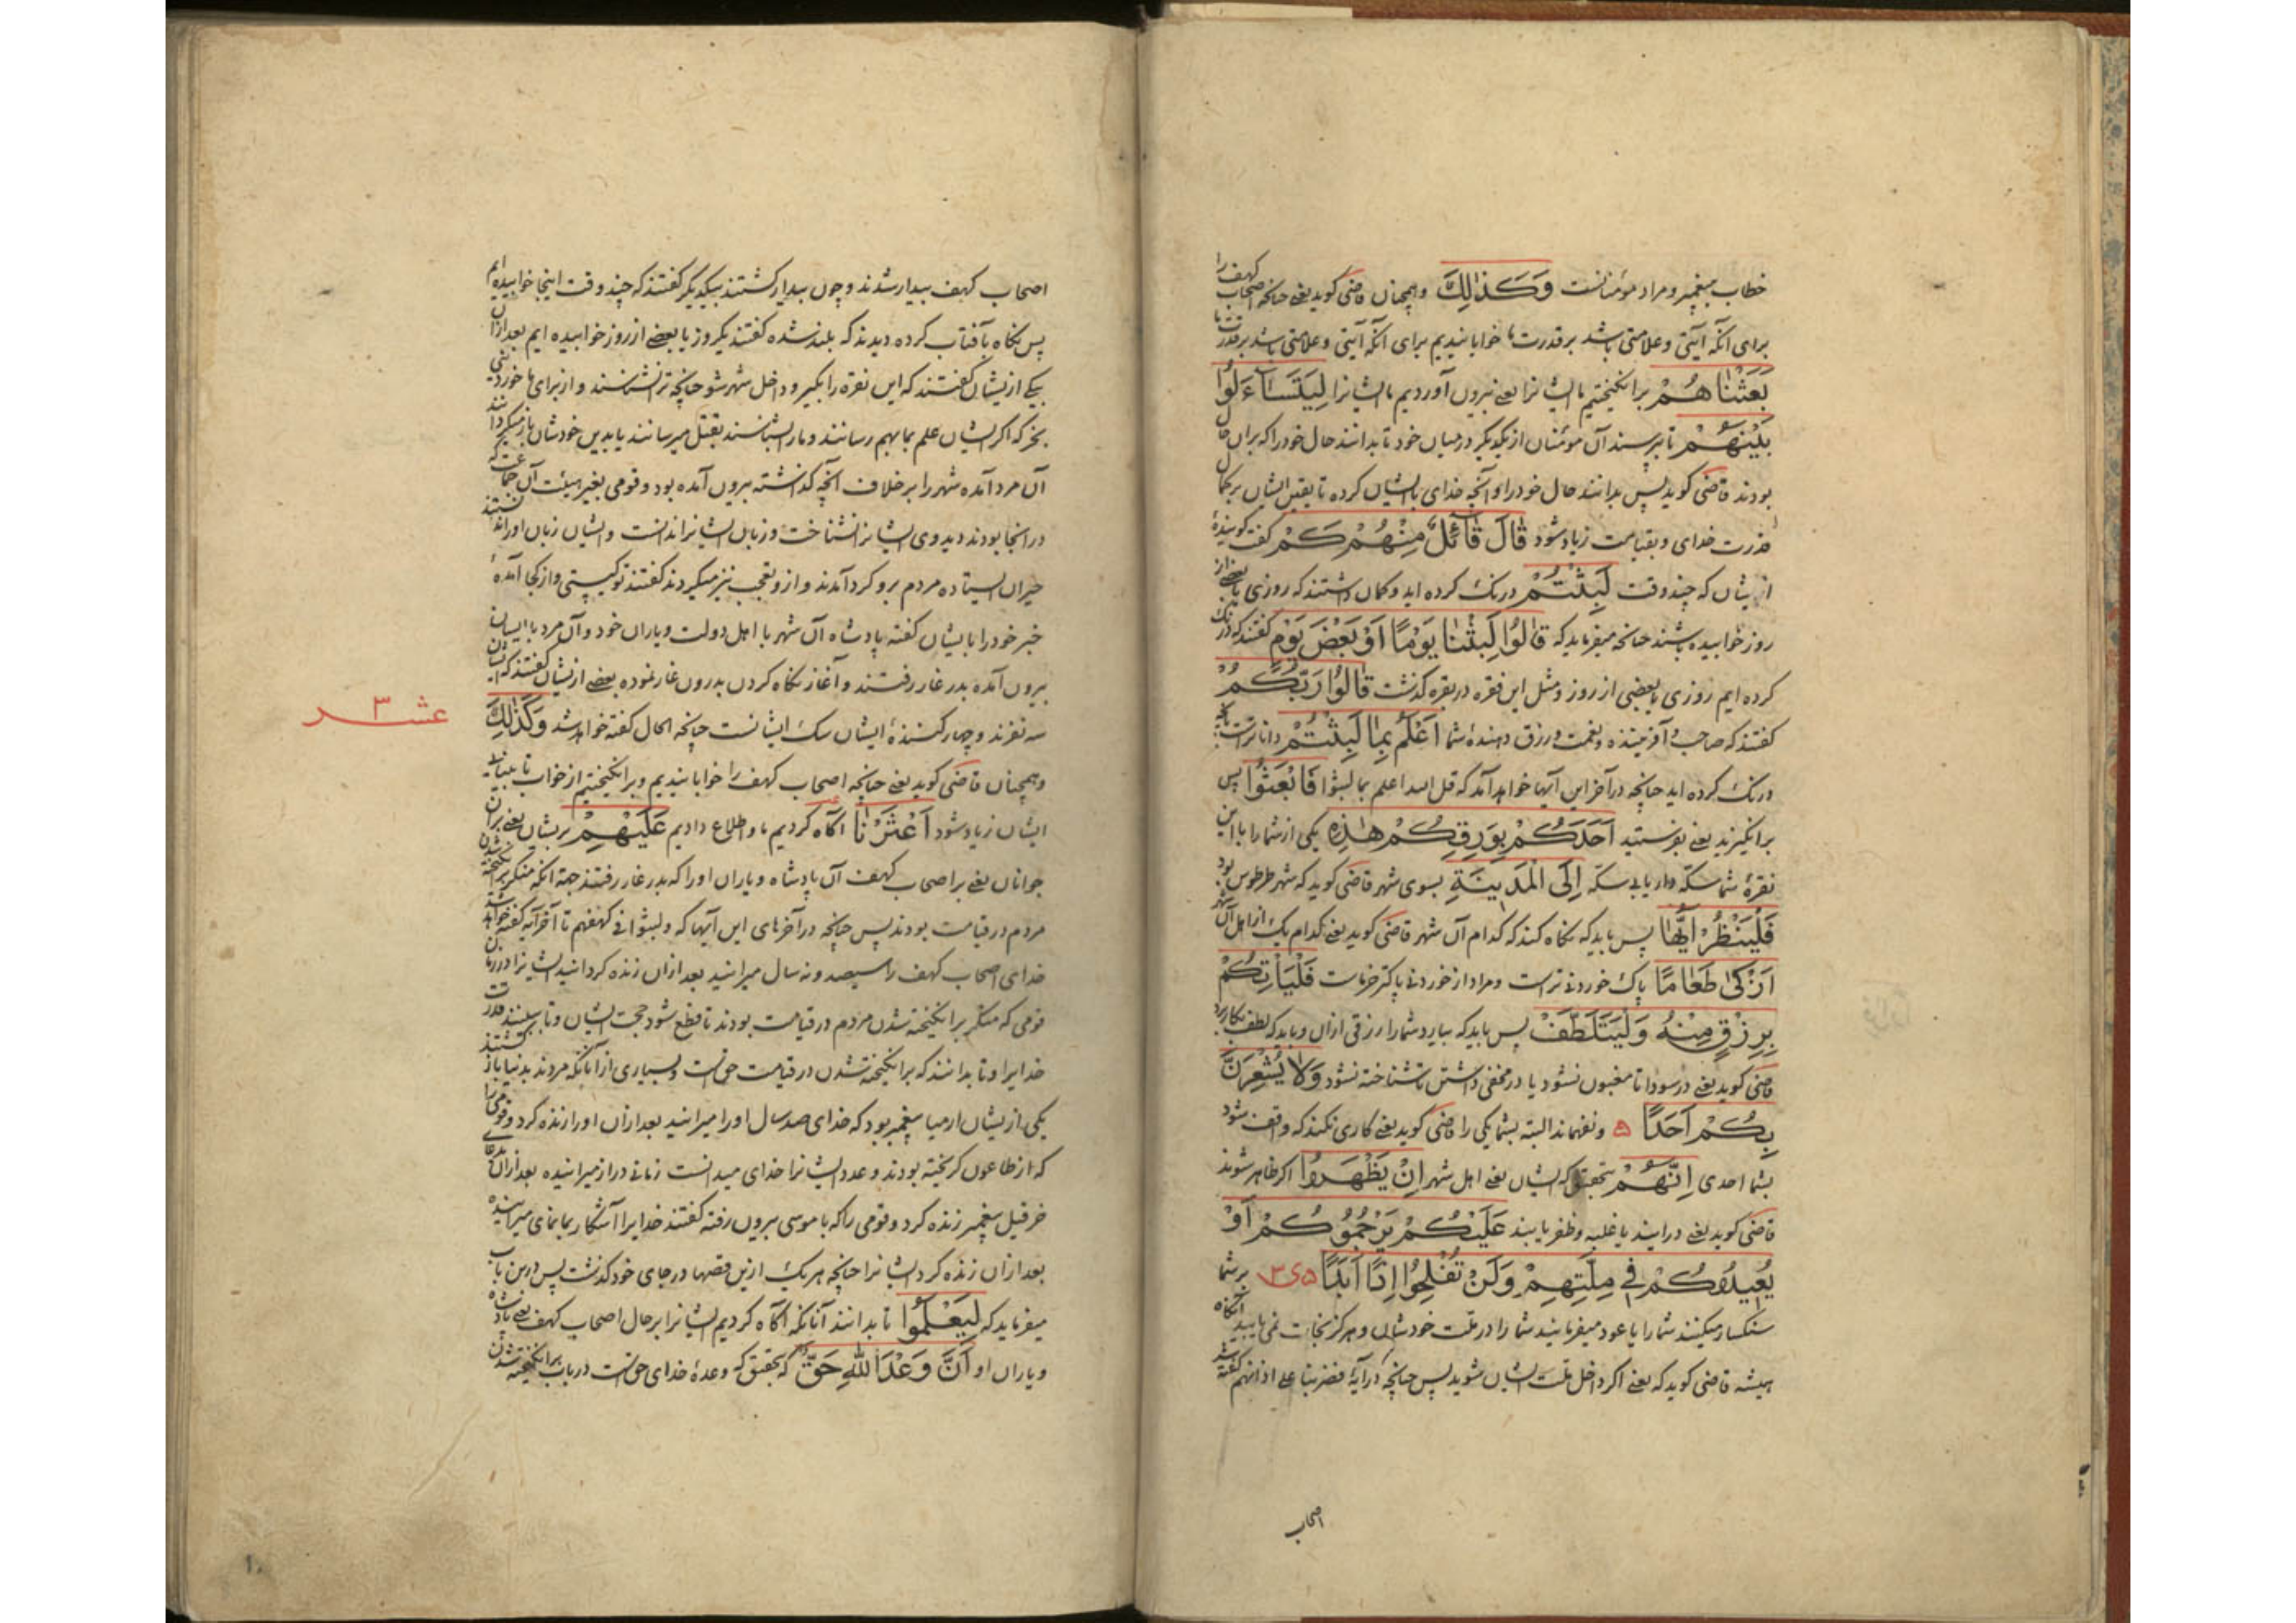 خطاب بپیغمبر و مراد مؤمنانست وَكَذٰلِكَ و همچنان قاضی کوید یعنی چنانچه اصحاب کهف را
برای آنکه آیتی و علامتی باشد بر قدرت ما خوابانیدیم برای آنکه آیتی و علامتی باشد بر قدرت ما
بَعَثْنَاهُمْ برانکیختیم ما ایشانرا یعنی بیرون آوردیم ما ایشانرا لِيَتَسَآءَلُوا
بَيْنَهُمْ تا بپرسند آن مؤمنان از یکدیکر در میان خود تا بدانند حال خود را که بران حال
بودند قاضی کوید پس بدانند حال خود را و آنچه خدای با ایشان کرده تا یقین ایشان بر کمال
قدرت خدای و بقیامت زیاد شود قَالَ قَآئِلٌ مِنْهُمْ كَمْ کفت کویندهٔ
ازیشان که چند وقت لَبِثْتُمْ درنک کرده اید و کمان داشتند که روزی یا بعضی از
روز خوابیده باشند چنانچه میفرماید که قَالُوا لَبِثْنَا يَوْمًا أَوْ بَعْضَ يَوْمٍ کفتند که درنک
کرده ایم روزی یا بعضی از روز و مثل این فقره در بقره کذشت قَالُوا رَبُّكُمْ
کفتند که صاحب و آفریننده و نعمت و رزق دهندهٔ شما أَعْلَمُ بِمَا لَبِثْتُمْ داناتر است بآنچه
درنک کرده اید چنانچه در آخر این آیها خواهد آمد که قل الله اعلم بما لبثوا فَابْعَثُوا پس
برانکیزید یعنی بفرستید أَحَدَكُمْ بِوَرِقِكُمْ هٰذِهِ یکی از شما را با این
نقرهٔ شما سکه دار یا بی سکه إِلَى الْمَدِينَةِ بسوی شهر قاضی کوید که شهر طرطوس بود
فَلْيَنْظُرْ أَيُّهَا پس باید که نکاه کند که کدام آن شهر قاضی کوید یعنی کدام یک از اهل آن شهر
أَزْكٰى طَعَامًا پاک خوردنی تر است و مراد از خوردنی پاکتر خرماست فَلْيَأْتِكُمْ
بِرِزْقٍ مِنْهُ وَلْيَتَلَطَّفْ پس باید که بیارد شما را رزقی ازان و باید که لطف بکار برد
قاضی کوید یعنی در سودا تا مغبون نشود یا در مخفی داشتن تا شناخته نشود وَلَا يُشْعِرَنَّ
بِكُمْ أَحَدًا ۵ و نفهماند البته بشما یکی را قاضی کوید یعنی کاری نکند که واقف شود
بشما احدی إِنَّهُمْ بتحقیق که ایشان یعنی اهل شهر إِنْ يَظْهَرُوا اکر ظاهر شوند
قاضی کوید یعنی در آیند یا غلبه و ظفر یابند عَلَيْكُمْ يَرْجُمُوكُمْ أَوْ
يُعِيدُوكُمْ فِي مِلَّتِهِمْ وَلَنْ تُفْلِحُوا إِذًا أَبَدًا بر شما
سنکسار میکنند شما را یا عود میفرمایند شما را در ملت خودشان و هرکز نجات نمی یابید آنکاه
همیشه قاضی کوید که یعنی اکر داخل ملت ایشان شوید پس چنانچه در آیهٔ فضربنا علی اذانهم کفته شد
اصحاب
اصحاب کهف بیدار شدند و چون بیدار کشتند بیکدیکر کفتند که چند وقت اینجا خوابیده ایم
پس نکاه بآفتاب کرده دیدند که بلند شده کفتند یکروز یا بعضی از روز خوابیده ایم بعد ازان
بیکی ازیشان کفتند که این نقره را بکیر و داخل شهر شو چنانچه ترا نشناسند و از برای ما خوردنی
بخر که اکر ایشان علم بما بهم رسانند و ما را بشناسند بقتل میرسانند یا بدین خودشان باز میکردانند
آن مرد آمده شهر را بر خلاف آنچه کذاشته بیرون آمده بود و قومی بغیر هیئت آن جماعت که
در آنجا بودند دید وی ایشانرا نشناخت و زبان ایشانرا ندانست و ایشان زبان او را ندانستند
حیران ایستاده مردم برو کرد آمدند و ازو تعجب نیز میکردند کفتند تو کیستی و از کجا آمدهٔ
خبر خود را بایشان کفته پادشاه آن شهر با اهل دولت و یاران خود و آن مرد با ایشان
بیرون آمده بدر غار رفتند و آغاز نکاه کردن بدرون غار نموده بعضی ازیشان کفتند که ایشان
عشر ٣
سه نفرند و چهار کنندهٔ ایشان سک ایشانست چنانچه الحال کفته خواهد شد وَكَذٰلِكَ
و همچنان قاضی کوید یعنی چنانچه اصحاب کهف را خوابانیدیم و برانکیختیم از خواب تا بینایی
ایشان زیاد شود أَعْثَرْنَا آکاه کردیم ما و اطلاع دادیم عَلَيْهِمْ بریشان یعنی بران
جوانان یعنی بر اصحاب کهف آن پادشاه و یاران او را که بدر غار رفتند جهة آنکه منکر برانکیخته شدن
مردم در قیامت بودند پس چنانچه در آخرهای این آیها که و لبثوا فی کهفهم تا آخر آیه کفته خواهد شد
خدای اصحاب کهف را سیصد و نه سال میرانید بعد ازان زنده کردانید ایشانرا در زمان
قومی که منکر برانکیخته شدن مردم در قیامت بودند تا قطع شود حجت ایشان و تا ببینند قدرت
خدایرا و تا بدانند که برانکیخته شدن در قیامت حق است و بسیاری از آنانکه مردند بدنیا باز کشتند
یکی ازیشان ارمیا پیغمبر بود که خدای صد سال او را میرانید بعد ازان او را زنده کرد و قومی را
که از طاعون کریخته بودند و عدد ایشانرا خدای میدانست زمانی دراز میرانیده بعد ازان بدعای
خرقیل پیغمبر زنده کرد و قومی را که با موسی بیرون رفته کفتند خدایرا آشکار بما بنمای میرانیده
بعد ازان زنده کرد ایشانرا چنانچه هر یک ازین قصها در جای خود کذشت پس درین باب
میفرماید که لِيَعْلَمُوا تا بدانند آنانکه آکاه کردیم ایشانرا بر حال اصحاب کهف یعنی پادشاه
و یاران او أَنَّ وَعْدَ اللّٰهِ حَقٌّ که بتحقیق که وعدهٔ خدای حق است در باب برانکیخته شدن